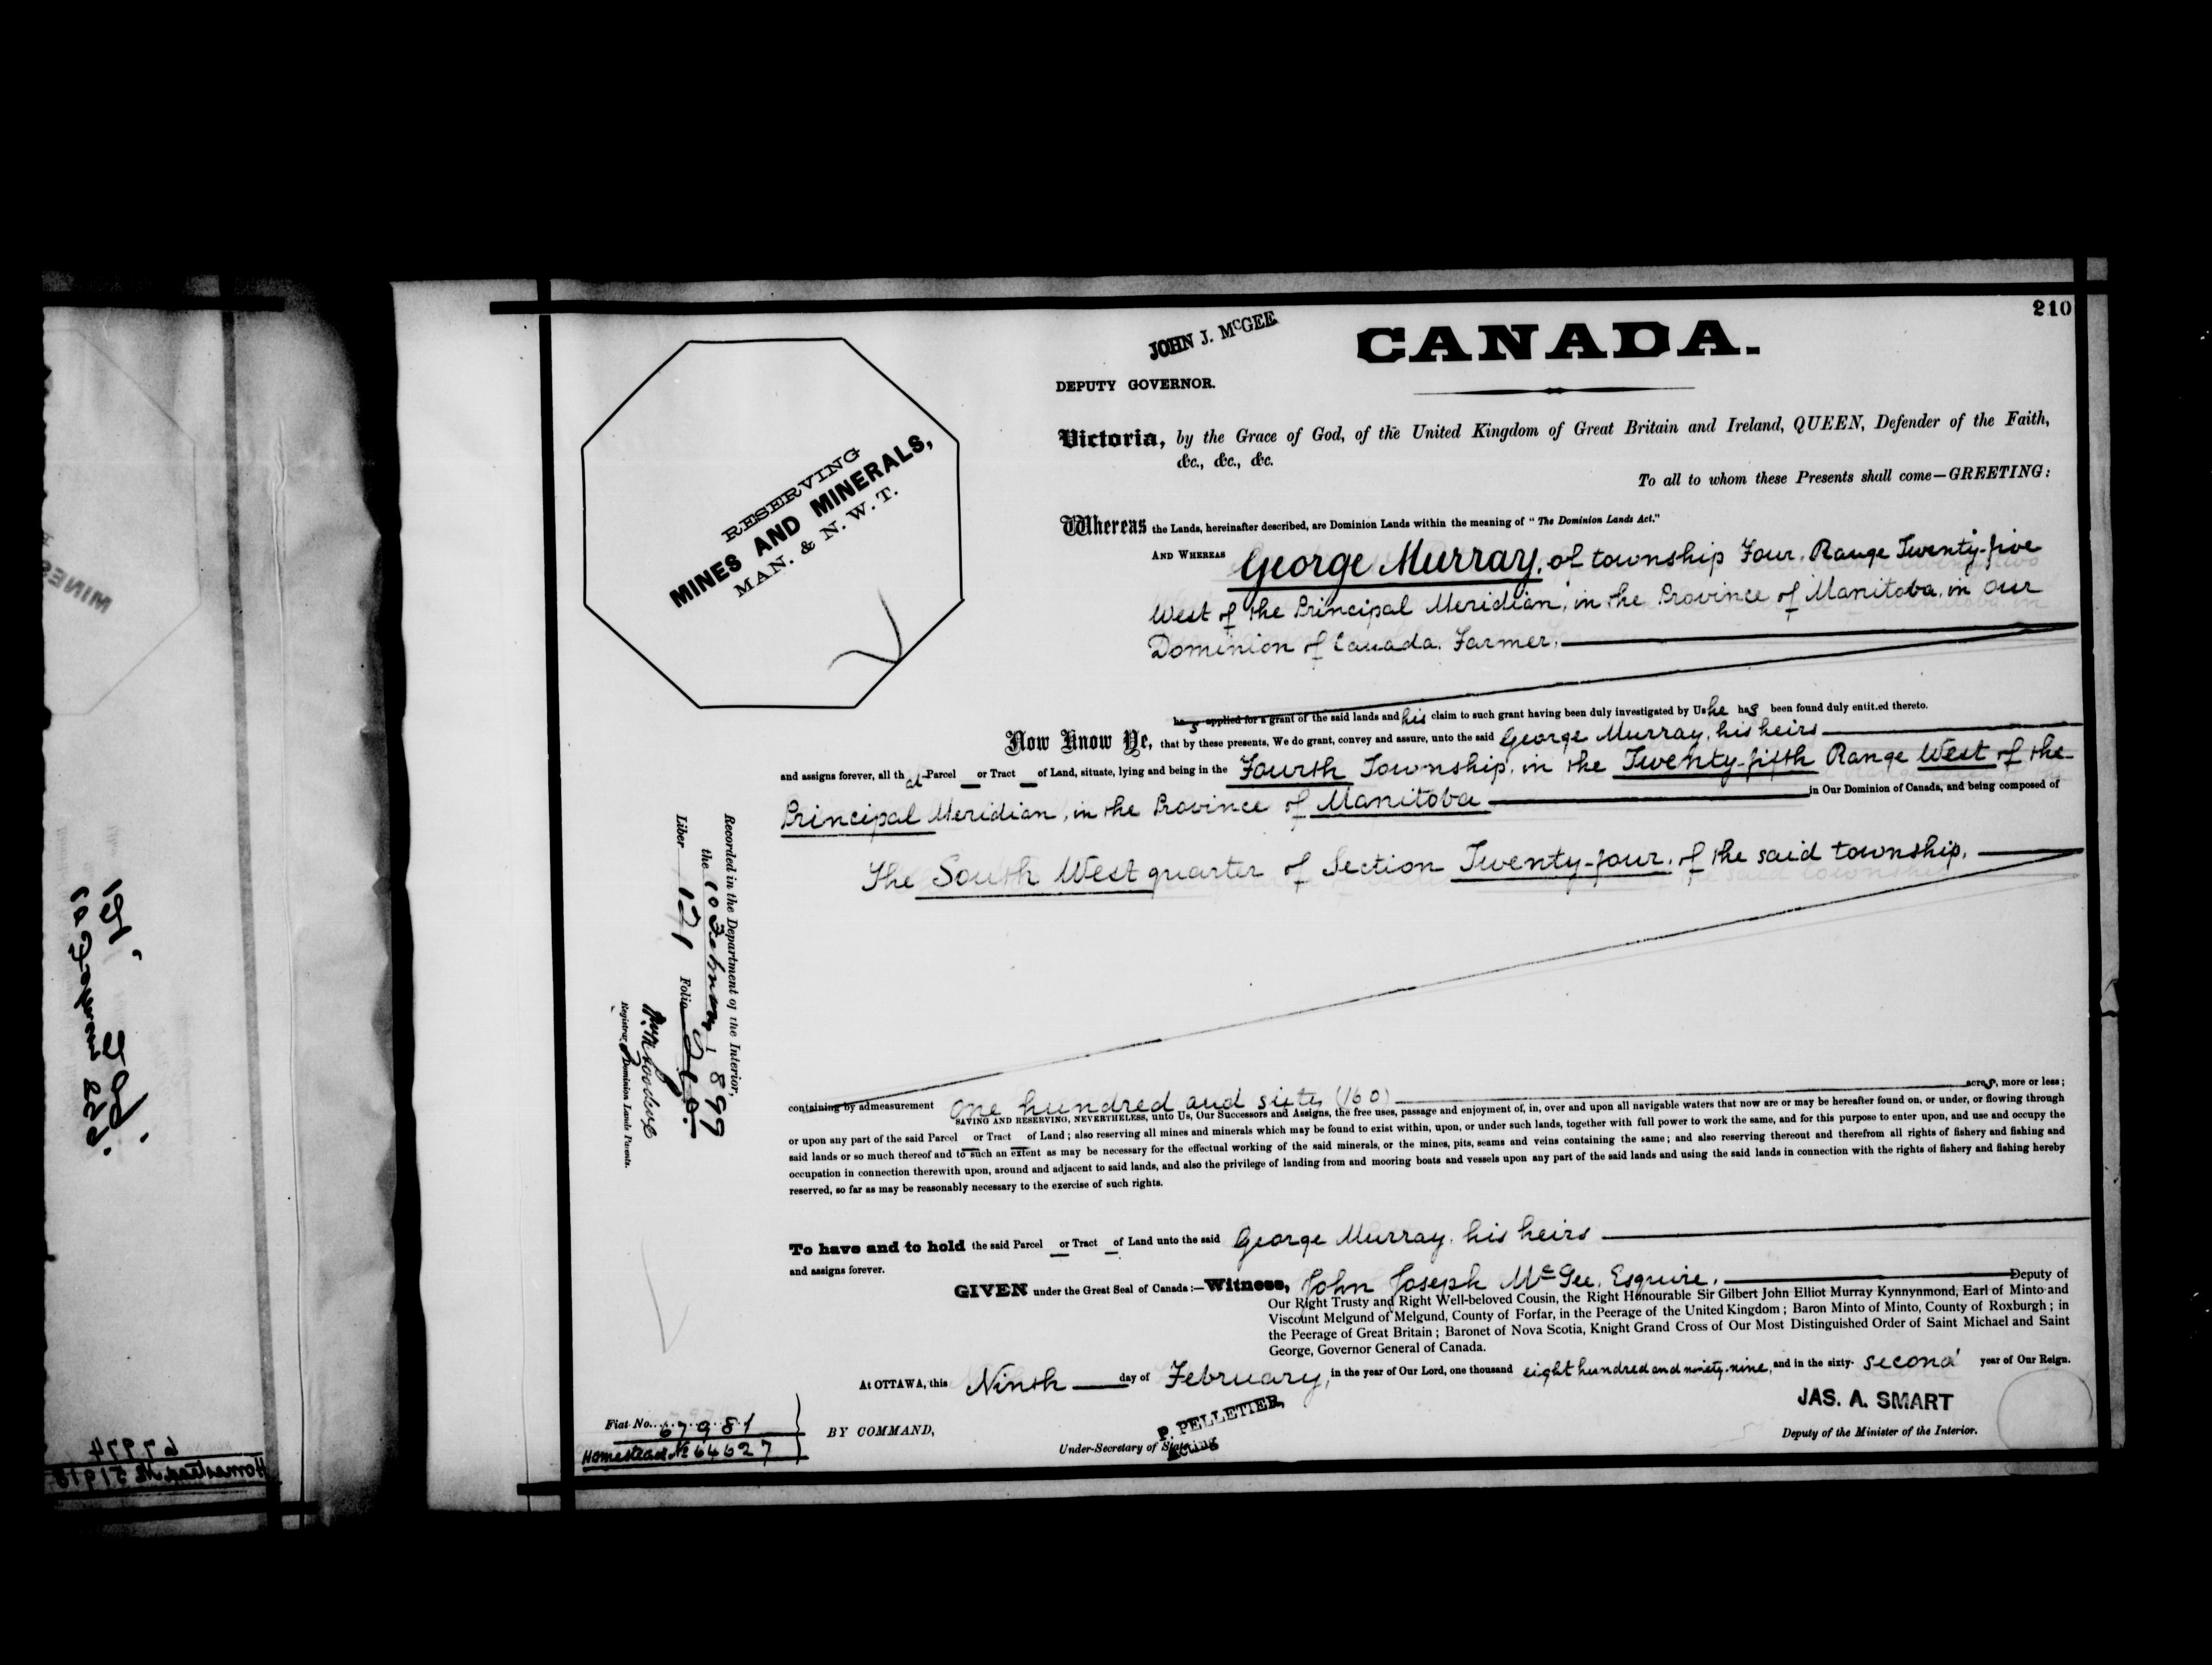 210
JOHN J. McGEE
CANADA.
DEPUTY GOVERNOR.
RESERVING
MINES AND MINERALS,
MAN. & N. W. T.
Victoria, by the Grace of God, of the United Kingdom of Great Britain and Ireland, QUEEN, Defender of the Faith,
&c., &c., &c.
To all to whom these Presents shall come—GREETING:
Whereas the Lands, hereinafter described, are Dominion Lands within the meaning of "The Dominion Lands Act."
AND WHEREAS George Murray, of township Four, Range Twenty-five
West of the Principal Meridian, in the Province of Manitoba, in Our
Dominion of Canada, Farmer,
has applied for a grant of the said lands and his claim to such grant having been duly investigated by Us he has been found duly entit.ed thereto.
Now Know Ye, that by these presents, We do grant, convey and assure, unto the said George Murray, his heirs
and assigns forever, all that Parcel or Tract of Land, situate, lying and being in the Fourth Township, in the Twenty-fifth Range West of the
Principal Meridian, in the Province of Manitoba in Our Dominion of Canada, and being composed of
The South West quarter of Section Twenty-four, of the said township,
Recorded in the Department of the Interior,
the 10 February 1899
Liber 121 Folio 210
Registrar Dominion Lands Patents.
containing by admeasurement one hundred and sixty (160) acres, more or less;
SAVING AND RESERVING, NEVERTHELESS, unto Us, Our Successors and Assigns, the free uses, passage and enjoyment of, in, over and upon all navigable waters that now are or may be hereafter found on, or under, or flowing through
or upon any part of the said Parcel or Tract of Land; also reserving all mines and minerals which may be found to exist within, upon, or under such lands, together with full power to work the same, and for this purpose to enter upon, and use and occupy the
said lands or so much thereof and to such an extent as may be necessary for the effectual working of the said minerals, or the mines, pits, seams and veins containing the same; and also reserving thereout and therefrom all rights of fishery and fishing and
occupation in connection therewith upon, around and adjacent to said lands, and also the privilege of landing from and mooring boats and vessels upon any part of the said lands and using the said lands in connection with the rights of fishery and fishing hereby
reserved, so far as may be reasonably necessary to the exercise of such rights.
To have and to hold the said Parcel or Tract of Land unto the said George Murray, his heirs
and assigns forever.
GIVEN under the Great Seal of Canada:—Witness, John Joseph McGee, Esquire, Deputy of
Our Right Trusty and Right Well-beloved Cousin, the Right Honourable Sir Gilbert John Elliot Murray Kynnynmond, Earl of Minto and
Viscount Melgund of Melgund, County of Forfar, in the Peerage of the United Kingdom; Baron Minto of Minto, County of Roxburgh; in
the Peerage of Great Britain; Baronet of Nova Scotia, Knight Grand Cross of Our Most Distinguished Order of Saint Michael and Saint
George, Governor General of Canada.
At OTTAWA, this Ninth day of February, in the year of Our Lord, one thousand eight hundred and ninety-nine, and in the sixty- second year of Our Reign.
JAS. A. SMART
Deputy of the Minister of the Interior.
Fiat No. 67981
Homestead No 64627
BY COMMAND,
P. PELLETIER,
Under-Secretary of State
Acting
MINES
67974
Homestead No 51918